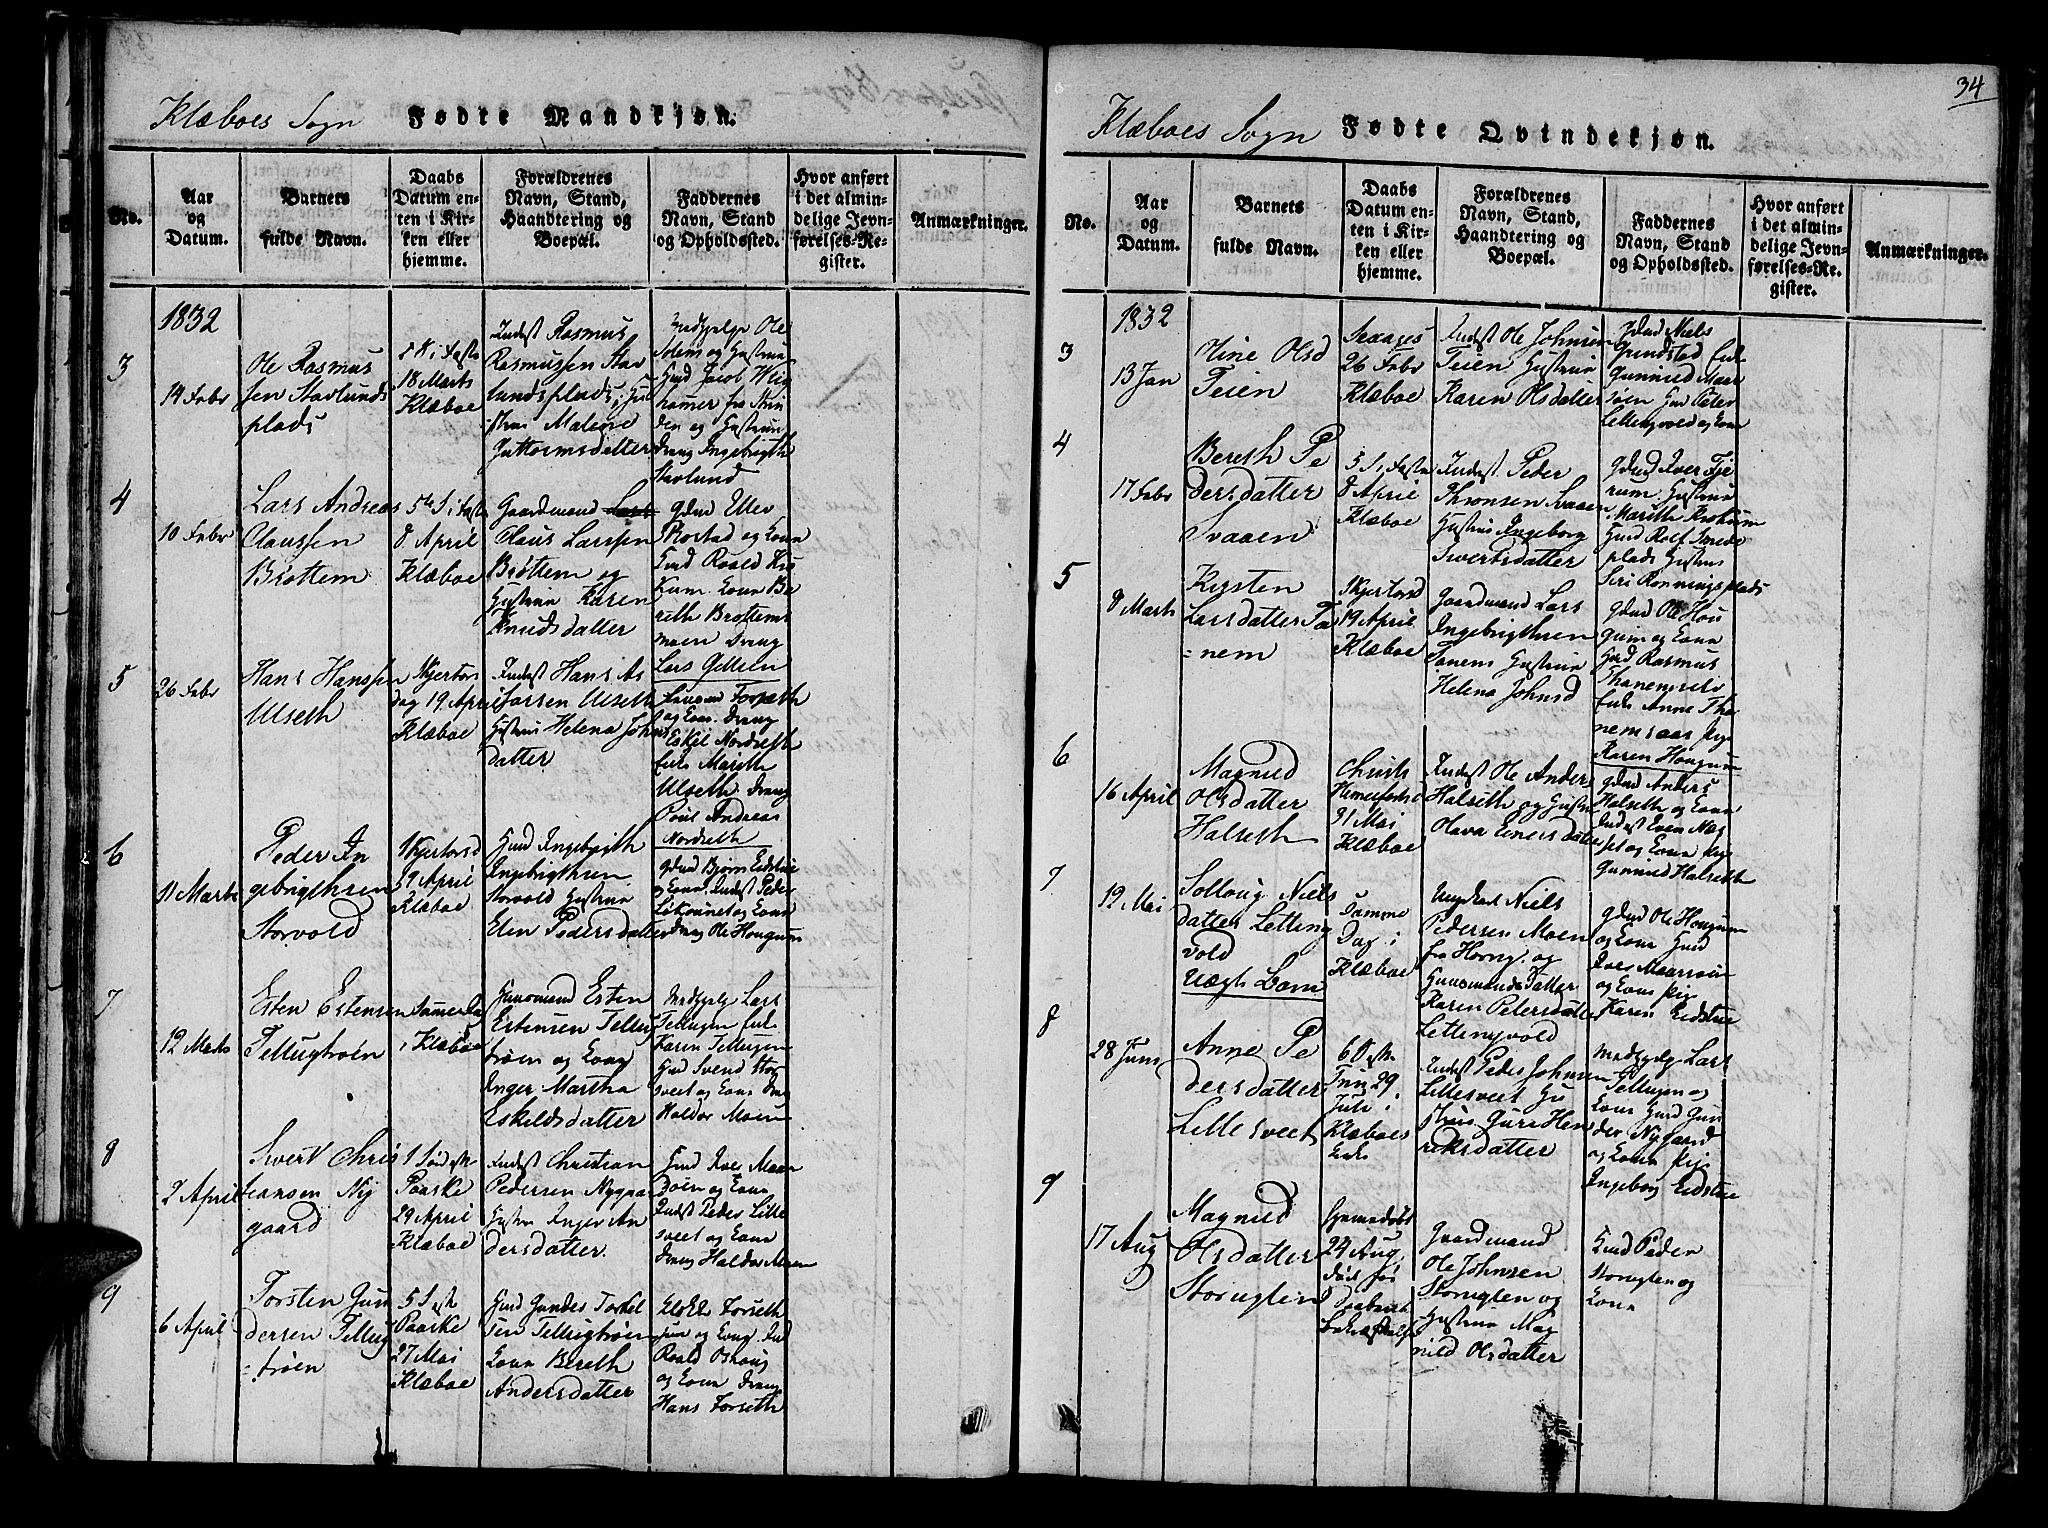 34
Klæboes Sogn Fødte Mandkjøn.
No.
Aar
og
Datum.
Barnets
fulde Navn.
Daabs
Datum en-
ten i Kir-
ken eller
hjemme.
Forældrenes
Navn, Stand,
Haandtering og
Boepæl.
Faddernes
Navn, Stand
og Opholdssted.
Hvor anført
i det almin-
delige Jevn-
førelses-Re-
gister.
Anmærkninger.
1832
3
14 Febr
Ole Rasmus
sen Stavlunds
plads
18 Marts
Klæboe
Indst Rasmus
Rasmussen Stav
lundsplads, Hu
strue Malene
Guttormsdatter
Ole
Solem og Hustrue
Gmd Jacob
fra Strin
den og Hustrue
Dreng Ingebrigth
Stavlund
4
10 Febr
Lars Andreas
Claussen
Brøttem
5te S i Faste
8 April
Klæboe
Gaardmand Lars
Claus Larssen
Brøttem og
Hustrue Karen
Knudsdatter
Gdmd Ellev
Rostad og Kona
Gmd Roald
Kona Be
reth Brøttems
moen Dreng
Lars
5
26 Febr
Hans Hanssen
Ulseth
1 Skjertors
dag 19 April
Klæboe
Indst Hans As
larsen Ulseth
Hustrue Helena Johns
datter
Forseth
og Kone Dreng
Eskil Nordseth
Enke Marith
Ulseth Dreng
Poul Andreas
Nordseth
6
11 Marts
Peder In
gebrigthsen
Storvold
1 Skjertorsd
19 April
Klæboe
Gmd Ingebrigth
Ingebrigthsen
Storvold Hustrue
Elen Pedersdatter
Gdmd Bjørn Eidstue
og Kone Indst Peder
og Kone
Dreng Ole Hougum
7
12 Marts
Esten Estensen
Tellugtrøen
Samme Dag
i Klæboe
Huusmand Esten
Estensen Tellug
trøen og Kone
Inger Martha
Eskildsdatter
Lars
Tellugen Enke
Karen Tellugen
Gmd Svend Stor
sveet og Kone Dreng
Haldor Moen
8
2 April
Sivert Chris
tiansen Ny
gaard
1 Sønd eft
Paaske
29 April
Klæboe
Indst Christian
Pedersen Nygaa
Hustrue Inger An
dersdatter
Gmd Iver Moen
og Kone
Indst Peder Lille
sveet og Kone
Dreng Haldor Moen
9
6 April
Torsten Gun
dersen Tellug
trøen
5 S eft
Paaske
27 Mai
Klæboe
Gmd Gunder Torkel
sen Tellugtrøen
Kone Bereth
Andersdatter
Forseth
og Kone Ind
Roald Oshoug
og Kone Dreng
Hans Forseth
Klæboes Sogn Fødte Qvindekjøn.
No.
Aar
og
Datum.
Barnets
fulde Navn.
Daabs
Datum en-
ten i Kir-
ken eller
hjemme.
Forældrenes
Navn, Stand,
Haandtering og
Boepæl.
Faddernes
Navn, Stand
og Opholdssted.
Hvor anført
i det almin-
delige Jevn-
førelses-Re-
gister.
Anmærkninger.
1832
3
13 Jan
Stine Olsd
Teien
Sexages
26 Febr
Klæboe
Indst Ole Johnsen
Teien Hustrue
Karen Olsdatter
Gdmd Niels
Grindstad Enke
Gunnild
Gmd Peter
Lettingvold og Kone
4
17 Febr
Bereth Pe
dersdatter
Svaaen
5 S i Faste
8 April
Klæboe
Indst Peder
Thronsen Svaaen
Hustrue Ingeborg
Sivertsdatter
Gdmd Iver Tje
rum Hustrue
Marith
Gmd Rolf Smeds
plads Hustrue
Siri Rønningsplads
5
8 Marts
Kirsten
Larsdatter Ta
=nem
1 Skjertorsd
19 April
Klæboe
Gaardmand Lars
Ingebrigthsen
Tanem Hustrue
Helena Johnsd
Gdmd Ole Hou
gum og Kone
Gmd Rasmus
Enke Anne Tha
nemsaas Pige
Karen Hougum
6
16 April
Magnild
Olsdatter
Halseth
Christi
Himmelfartsd
31 Mai
Klæboe
Indst Ole Anders
Halseth og Hustrue
Olava Einersdatter
Gdmd Anders
Halseth og Kone
Indst Even Næs
set og Kone Pige
Gunnild Halseth
7
19 Mai
Solloug Niels
datter Letting
vold
Uægte Barn
Samme
Dag i
Klæboe
Ungkarl Niels
Pedersen Moen
fra Horng. og
Huusmands Datter
Karen Petersdatter
Lettingvold
Gdmd Ole Hougum
og Kone Gmd
Iver
og Kone Pige
Karen Eidstue
8
28 Juni
Anne Pe
dersdatter
Lillesveet
6 S eft
Trin 29
Juli i
Klæboe
Indst Peder Johnsen
Lillesveet Hu
strue Guri Hen
riksdatter
Lars
Tellugen og
Kone Gmd Gun
der Nygaard
og Kone Pige
Ingeborg Eidstue
9
17 Aug
Magnild
Olsdatter
Storuglen
Hjemmedøbt
24 Aug.
død før
Gaardmand
Ole Johnsen
Storuglen og
Hustrue Mag
nild Olsdatter
Gmd Peder
Storuglen og
Kone